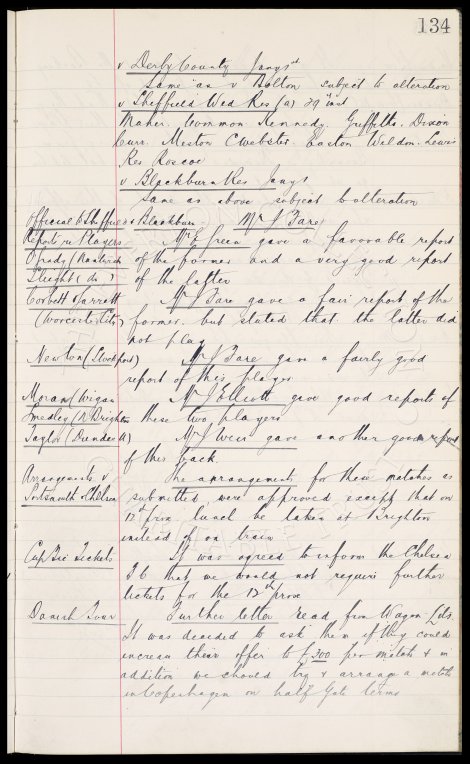 134
v Derby County Jany 1st
Same as v Bolton subject to alteration
v Sheffield Wed Res (a) 29 inst
Maher. Common Kennedy. Griffiths. Dixon
Curr. Meston C Webster. Easton Waldon. Lewis
Res Roscoe
v Blackburn Res Jany
Same as above subject to alteration
Official to Sheffield & Blackburn. Mr J Fare
Reports re Players Mr E Green gave a favorable report
O'Grady (Nantwich of the former and a very good report
Slieght (do) of the latter
Corbett & Jarratt Mr J Fare gave a fair report of the
(Worcester City) former, but stated that the latter did
not play
Newton (Stockport) Mr J Fare gave a fairly good
report of this player
Moran (Wigan Mr J Elliott gave good reports of
Smedley (N. Brighton these two players
Taylor (Dundee U) Mr J Weir gave another good report
of this back
Arrangements v The arrangements for these matches as
Portsmouth & Chelsea submitted, were approved except that on
12th prox, lunch be taken at Brighton
instead of on train
Cup Tie Tickets It was agreed to inform the Chelsea
F C that we would not require further
tickets for the 12th prox
Danish Tour Further letter read from Wagon Lits.
It was decided to ask them if they could
increase their offer to £300 per match & in
addition we should try & arrange a match
in Copenhagen on half Gate terms